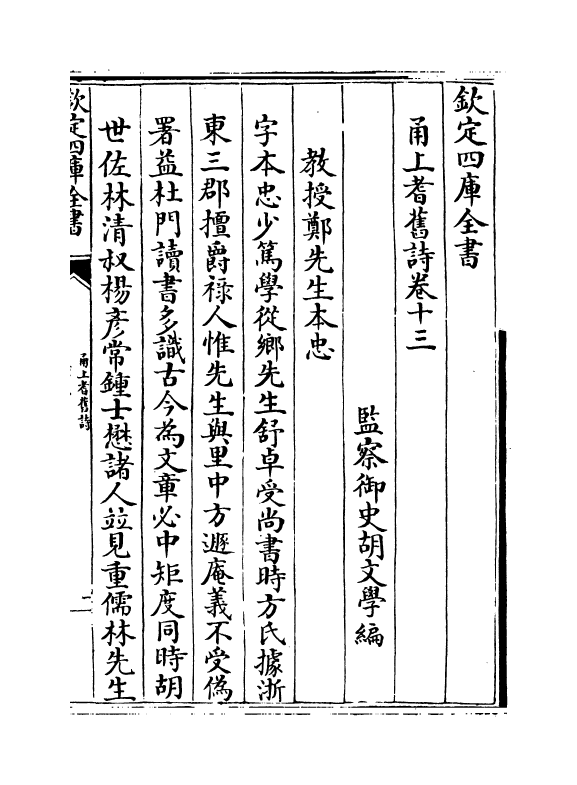 欽定四庫全書
甬上耆舊詩卷十三
監察御史胡文學編
教授鄭先生本忠
字本忠少篤學從鄉先生舒卓受尚書時方氏據浙
東三郡擅爵祿人惟先生與里中方遯庵義不受偽
署益杜門讀書多識古今為文章必中矩度同時胡
世佐林清叔楊彥常鍾士懋諸人竝見重儒林先生
欽定四庫全書
甬上耆舊詩